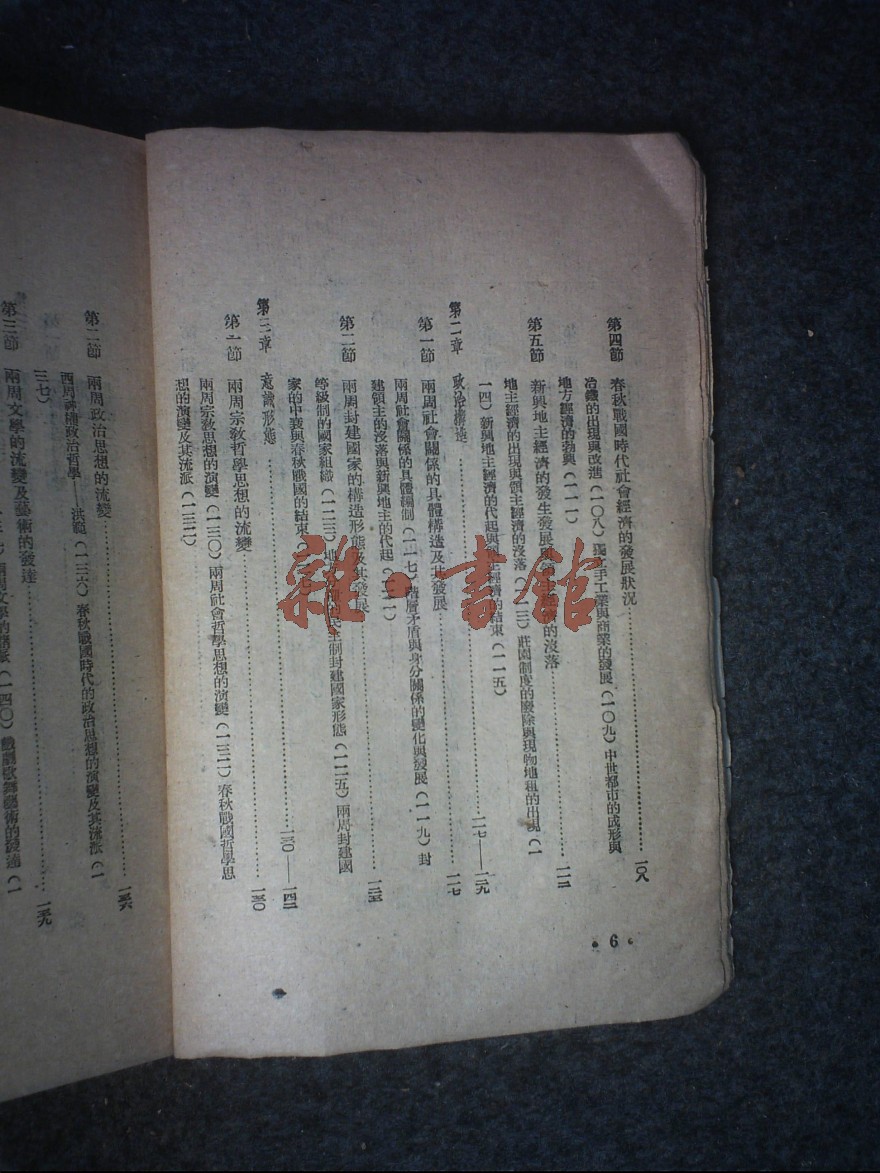 第四節 春秋戰國時代社會經濟的發展狀況……一〇八
冶鐵的出現與改進（一〇八）獨立手工業與商業的發展（一〇九）中世都市的成形與
地方經濟的勃興（一一一）
第五節 新興地主經濟的發生發展與 的沒落……一一二
地主經濟的出現與領主經濟的沒落（一一三）莊園制度的廢除與現物地租的出現（一
一四）新興地主經濟的代起與 主經濟的結束（一一五）
第二章 政治構造……一一七——一二九
第一節 兩周社會關係的具體構造及其發展……一一七
兩周社會關係的具體編制（一一七）階層矛盾與身分關係的變化與發展（一一九）封
建領主的沒落與新興地主的代起（一二一）
第二節 兩周封建國家的構造形態及其發展……一二三
等級制的國家組織（一二三）地 主制封建國家形態（一二五）兩周封建國
家的中衰與春秋戰國的結束
第三章 意識形態……一三〇——一四二
第一節 兩周宗教哲學思想的流變……一三〇
兩周宗教思想的演變（一三〇）兩周社會哲學思想的演變（一三二）春秋戰國哲學思
想的演變及其流派（一三二）
• 6 •
第二節 兩周政治思想的流變……一三六
西周神權政治哲學——洪範（一三六）春秋戰國時代的政治思想的演變及其流派（一
三七）
第三節 兩周文學的流變及藝術的發達……一三九
（一四〇）戲劇歌舞藝術的發達（一
雜·書館